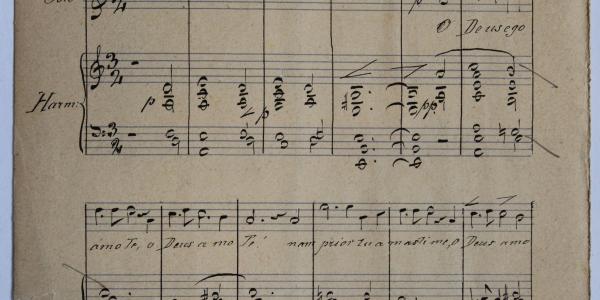 O Deus ego
Harm:
p p pp
amo Te, o Deus amo Te! nam prior tu amasti me, o Deus amo